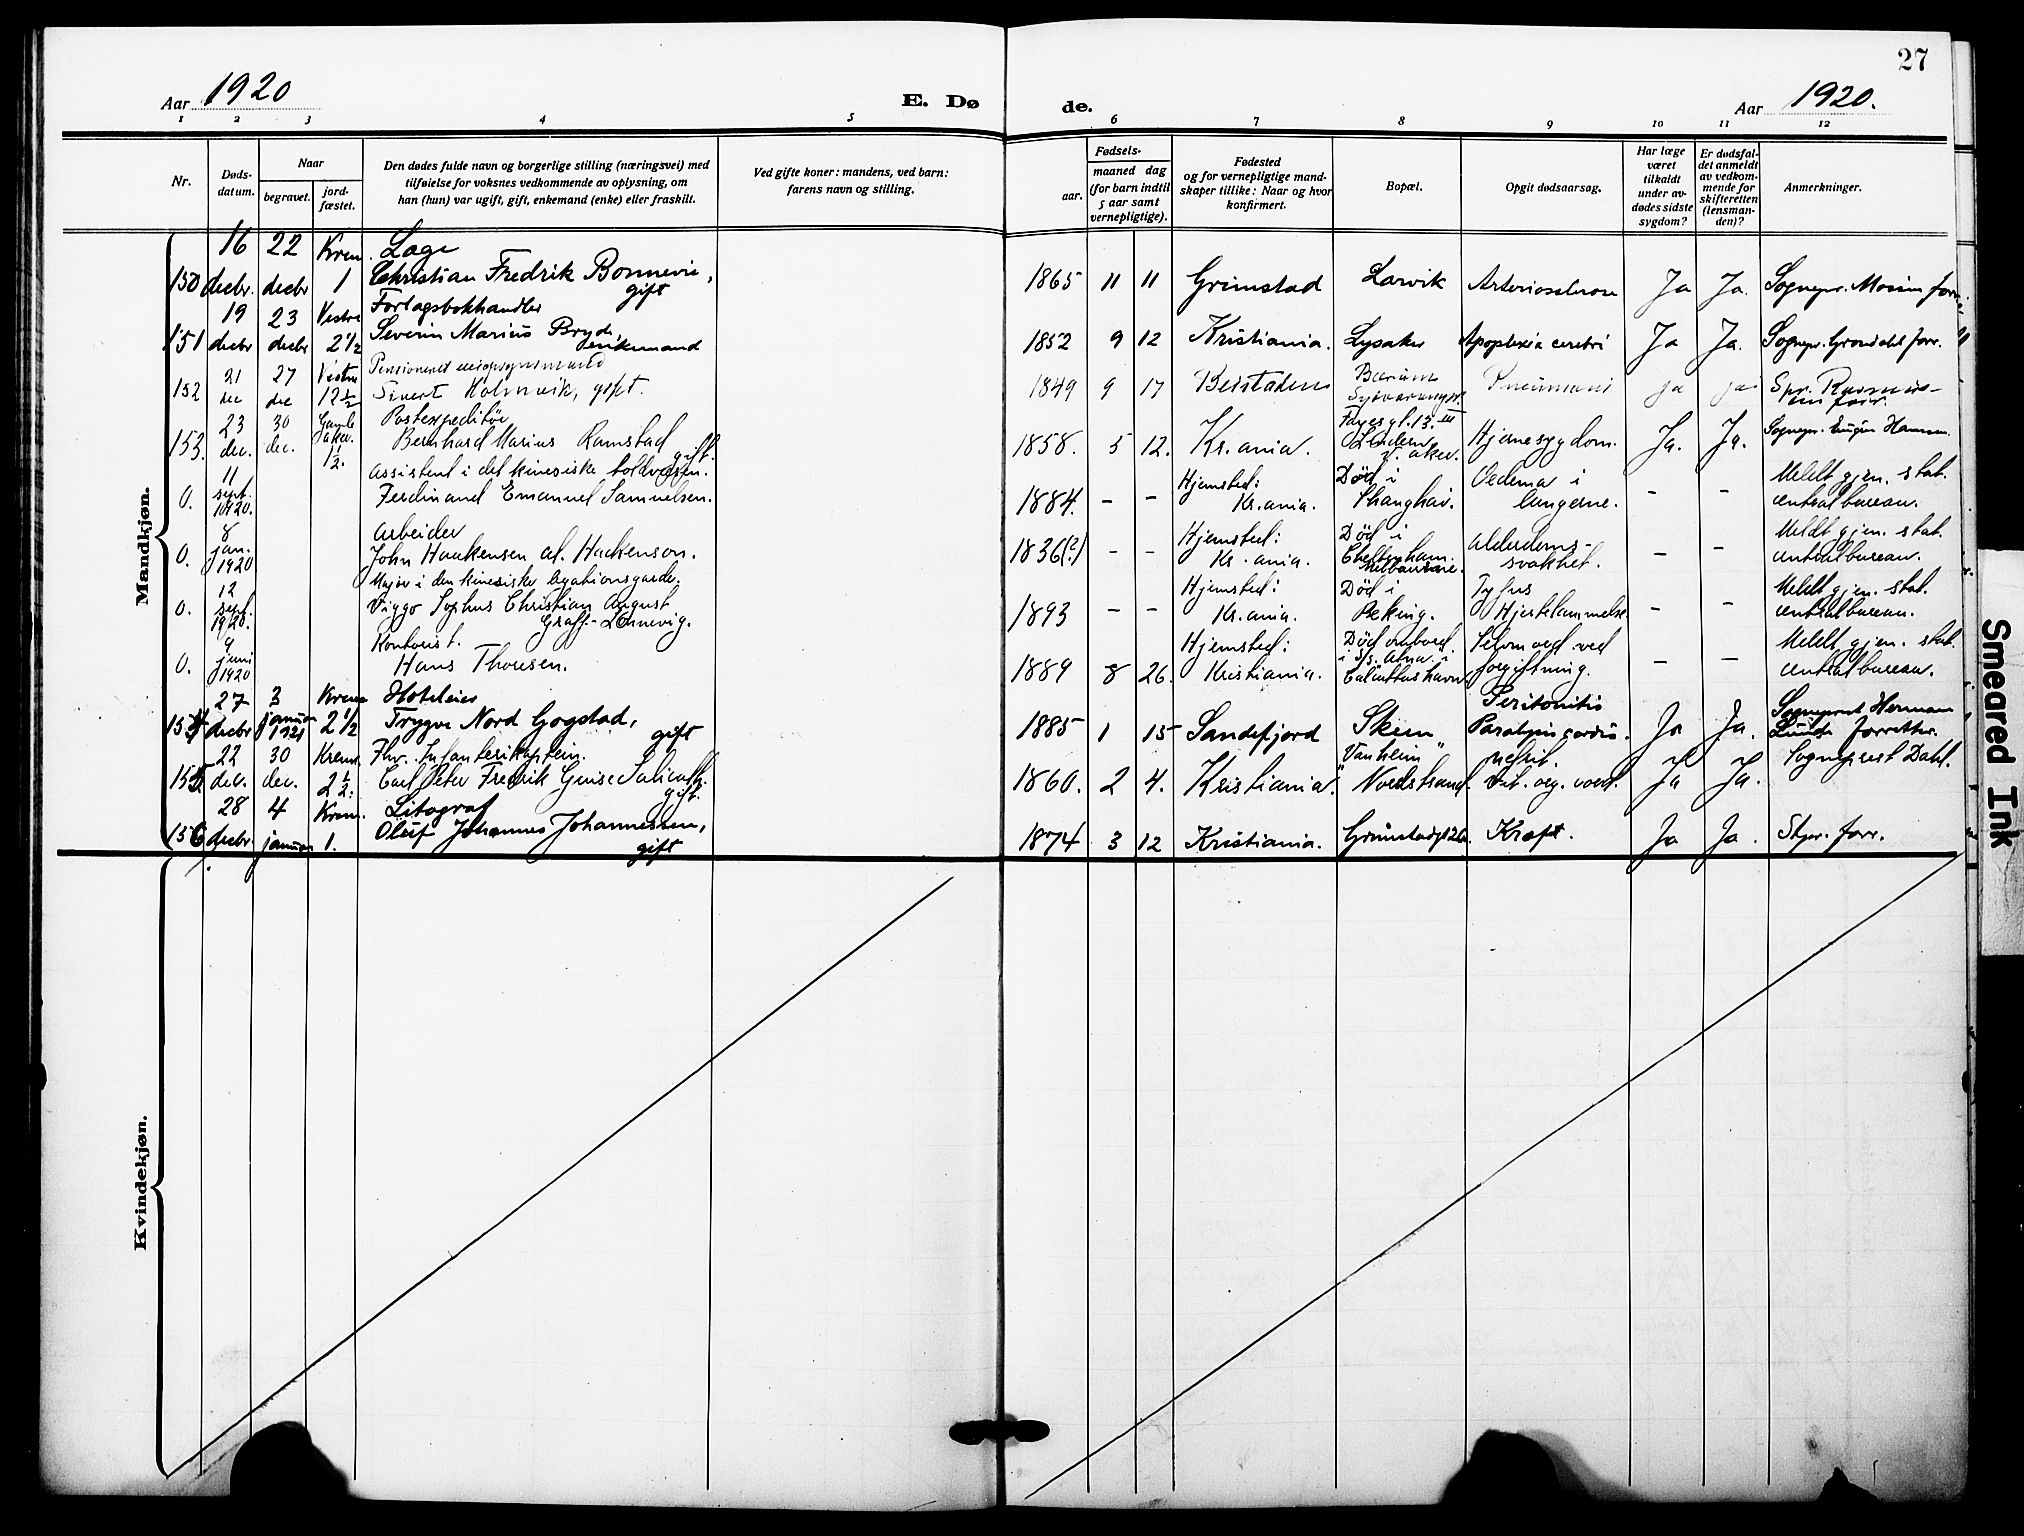 27
Aar 1920
E. Dø de.
Aar 1920.
1 2 3 4 5 6 7 8 9 10 11 12
Nr.
Døds-
datum.
Naar
begravet.
jord-
fæstet.
Den dødes fulde navn og borgerlige stilling (næringsvei) med
tilføielse for voksnes vedkommende av oplysning, om
han (hun) var ugift, gift, enkemand (enke) eller fraskilt.
Ved gifte koner: mandens, ved barn:
farens navn og stilling.
Fødsels-
aar.
maaned dag
(for barn indtil
5 aar samt
vernepligtige).
Fødested
og for vernepligtige mand-
skaper tillike: Naar og hvor
konfirmert.
Bopæl.
Opgit dødsaarsag.
Har læge
været
tilkaldt
under av-
dødes sidste
sygdom?
Er dødsfal-
det anmeldt
av vedkom-
mende for
skifteretten
(lensman-
den)?
Anmerkninger.
Mandkjøn.
16 22 Krem. Læge
150 decbr. decbr 1 Christian Fredrik Bonnevie, gift 1865 11 11 Grimstad Larvik Arteriosclerose Ja Ja. Sognepr. forr.
19 23 Vestre Forlagsbokhandler
151 decbr decbr 2 1/2 Severin Marius Bryde, enkemand 1852 9 12 Kristiania. Lysaker Apoplexia cerebri Ja Ja. Sognepr. Grøndahl forr.
21 27 Vestre Pensioneret
152 dec dec 12 1/2 Sivert Holmvik, gift. 1849 9 17 Beistaden Bærum Pneumoni ja ja Spr.
23 30 Gamle Aker. Postexpeditør
153. dec. dec. 1 1/2. Bernhard Marius Ramstad gift. 1858. 5 12. Kr.ania. V. Aker. Hjernesygdom. Ja. Ja. Sognepr. Eugen Hanssen.
11 Assistent i det kinesiske toldvæsen. Hjemsted: Død i Oedema i Meldt gjen. stat.
0. sept. 1920. Ferdinand Emanuel Samuelsen. 1884. – – Kr.ania. Shanghai. lungerne. – – centralbureau.
8 Arbeider Hjemsted: Død i Alderdoms- Meldt gjen. stat.
0. jan. 1920 John Haakensen al. Hackenson. 1836(?) – – Kr.ania. Cheltenham. svakhet. – – centralbureau.
12 Major i den kinesiske legationsgarde. Hjemsted: Død i Tyfus Meldt gjen. stat.
0. sept. 1920. Viggo Sophus Christian August 1893 – – Kr.ania. Peking. Hjertelammelse. – – centralbureau.
9 Kontorist. Hjemsted: Død ombord Selvmord ved Meldt gjen. stat.
0. juni 1920 Hans Thorsen. 1889 8 26. Kristiania. i S/s. Atna i Calcuttas havn. forgiftning. – – centralbureau.
27 3 Krem Hoteleier Peritonitis Sogneprest Herman
154 decbr januar 1921 2 1/2 Trygve Nord Gogstad, gift 1885 1 15 Sandefjord Skien Paralysis cordis. Ja Ja. Lunde forretter.
22 30 Krem. Fhv. Infanterikaptein. "Vanheim" Nefrit. Sogneprest Dahl.
155 dec. dec. 2 1/2. Carl Peter Fredrik gift. 1860. 2 4. Kristiania. Nordstrand. Vit. org. cord. Ja Ja.
28 4 Krem. Litograf
156 decbr. januar 1. Oluf Johannes Johannessen, gift 1874 3 12 Kristiania. Grünstadgt 26. Kræft. Ja Ja. Stpr. forr.
Kvindekjøn.
Smeared Ink